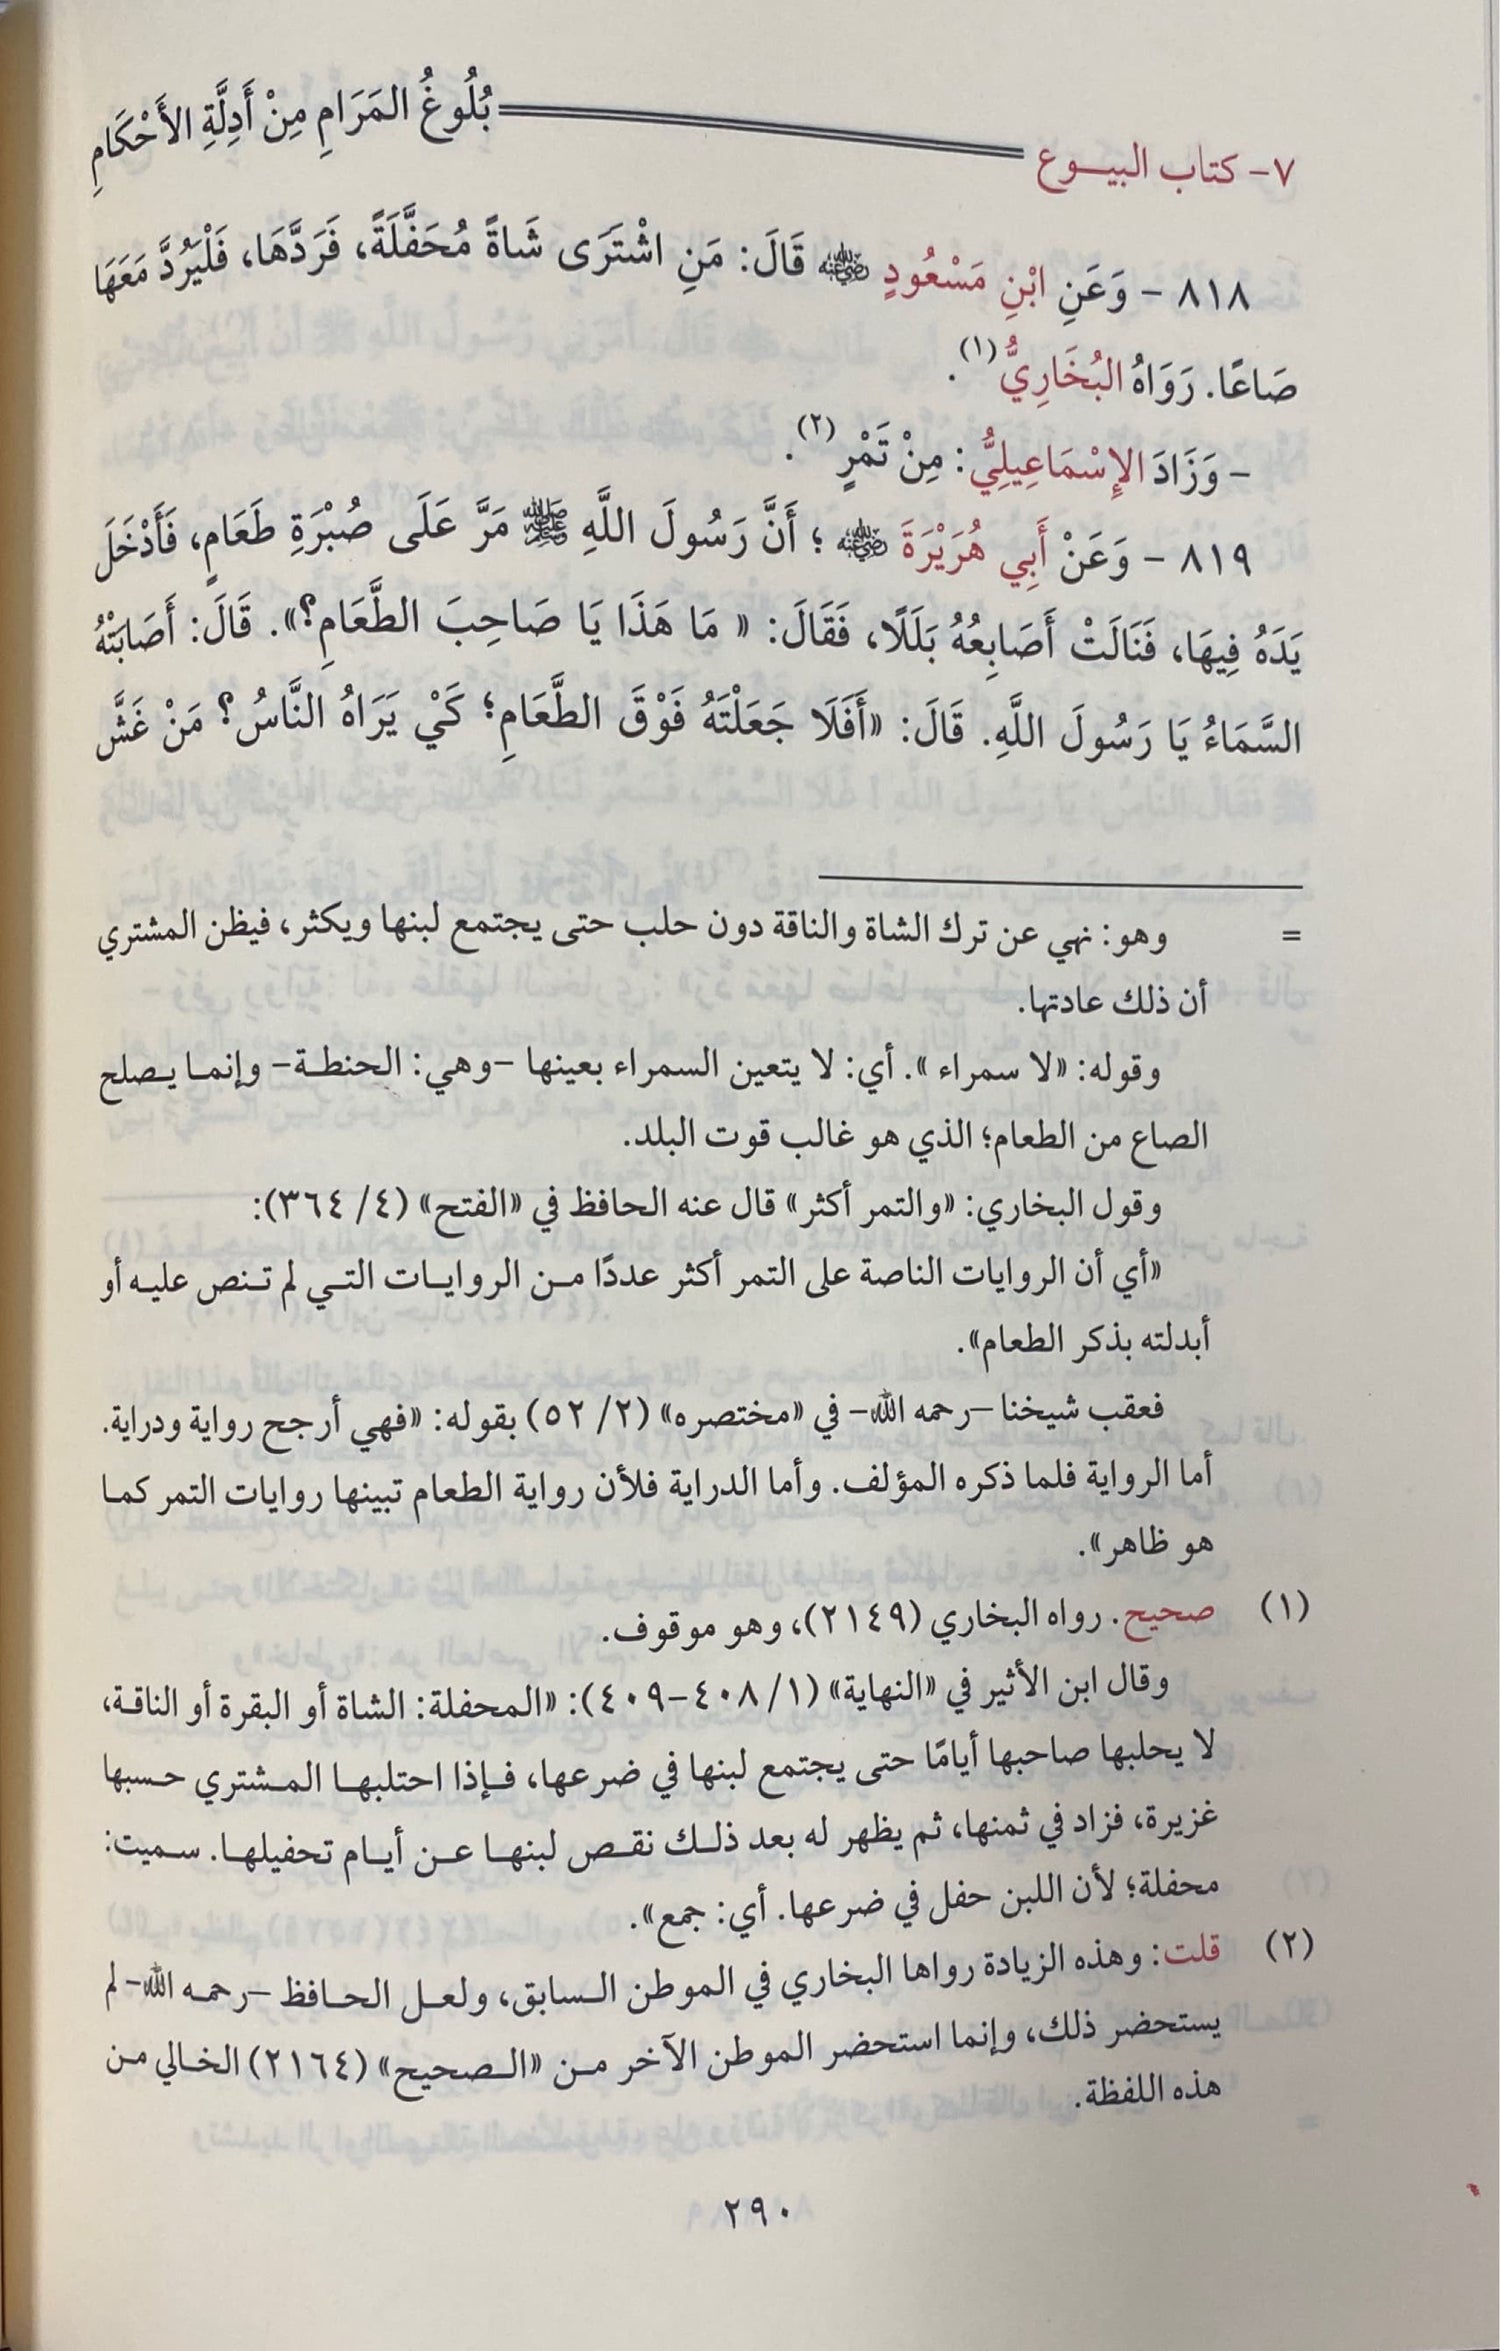 ٧- كتاب البيـــوع بُلُوغُ المَرَامِ مِنْ أَدِلَّةِ الأَحْكَامِ
٨١٨ - وَعَنِ ابْنِ مَسْعُودٍ ﵁ قَالَ: مَنِ اشْتَرَى شَاةً مُحَفَّلَةً، فَرَدَّهَا، فَلْيَرُدَّ مَعَهَا
صَاعًا. رَوَاهُ البُخَارِيُّ(١).
- وَزَادَ الإِسْمَاعِيلِيُّ: مِنْ تَمْرٍ(٢).
٨١٩ - وَعَنْ أَبِي هُرَيْرَةَ ﵁ ؛ أَنَّ رَسُولَ اللَّهِ ﷺ مَرَّ عَلَى صُبْرَةِ طَعَامٍ، فَأَدْخَلَ
يَدَهُ فِيهَا، فَنَالَتْ أَصَابِعُهُ بَلَلًا، فَقَالَ: « مَا هَذَا يَا صَاحِبَ الطَّعَامِ؟». قَالَ: أَصَابَتْهُ
السَّمَاءُ يَا رَسُولَ اللَّهِ. قَالَ: «أَفَلَا جَعَلْتَهُ فَوْقَ الطَّعَامِ؛ كَيْ يَرَاهُ النَّاسُ؟ مَنْ غَشَّ
= وهو: نهي عن ترك الشاة والناقة دون حلب حتى يجتمع لبنها ويكثر، فيظن المشتري
أن ذلك عادتها.
وقوله: «لا سمراء ». أي: لا يتعين السمراء بعينها -وهي: الحنطة- وإنما يصلح
الصاع من الطعام؛ الذي هو غالب قوت البلد.
وقول البخاري: «والتمر أكثر» قال عنه الحافظ في «الفتح» (٤/ ٣٦٤):
«أي أن الروايات الناصة على التمر أكثر عددًا من الروايات التي لم تنص عليه أو
أبدلته بذكر الطعام».
فعقب شيخنا -رحمه الله- في «مختصره» (٢/ ٥٢) بقوله: «فهي أرجح رواية ودراية.
أما الرواية فلما ذكره المؤلف. وأما الدراية فلأن رواية الطعام تبينها روايات التمر كما
هو ظاهر».
(١) صحيح. رواه البخاري (٢١٤٩)، وهو موقوف.
وقال ابن الأثير في «النهاية» (١/ ٤٠٨-٤٠٩): «المحفلة: الشاة أو البقرة أو الناقة،
لا يحلبها صاحبها أيامًا حتى يجتمع لبنها في ضرعها، فإذا احتلبها المشتري حسبها
غزيرة، فزاد في ثمنها، ثم يظهر له بعد ذلك نقص لبنها عن أيام تحفيلها. سميت:
محفلة؛ لأن اللبن حفل في ضرعها. أي: جمع».
(٢) قلت: وهذه الزيادة رواها البخاري في الموطن السابق، ولعل الحافظ -رحمه الله- لم
يستحضر ذلك، وإنما استحضر الموطن الآخر من «الصحيح» (٢١٦٤) الخالي من
هذه اللفظة.
٢٩٠